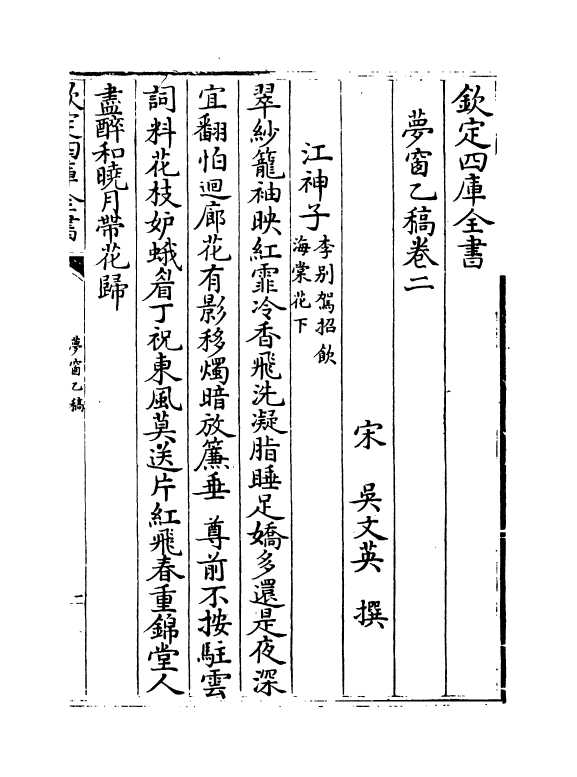 欽定四庫全書
夢窗乙稿卷二
宋　吳文英　撰
江神子李别駕招飲
海棠花下
翠紗籠袖映紅霏冷香飛洗凝脂睡足嬌多還是夜深
宜翻怕迴廊花有影移燭暗放簾垂　尊前不按駐雲
詞料花枝妒蛾眉丁祝東風莫送片紅飛春重錦堂人
盡醉和曉月帶花歸
欽定四庫全書
夢窗乙稿
二